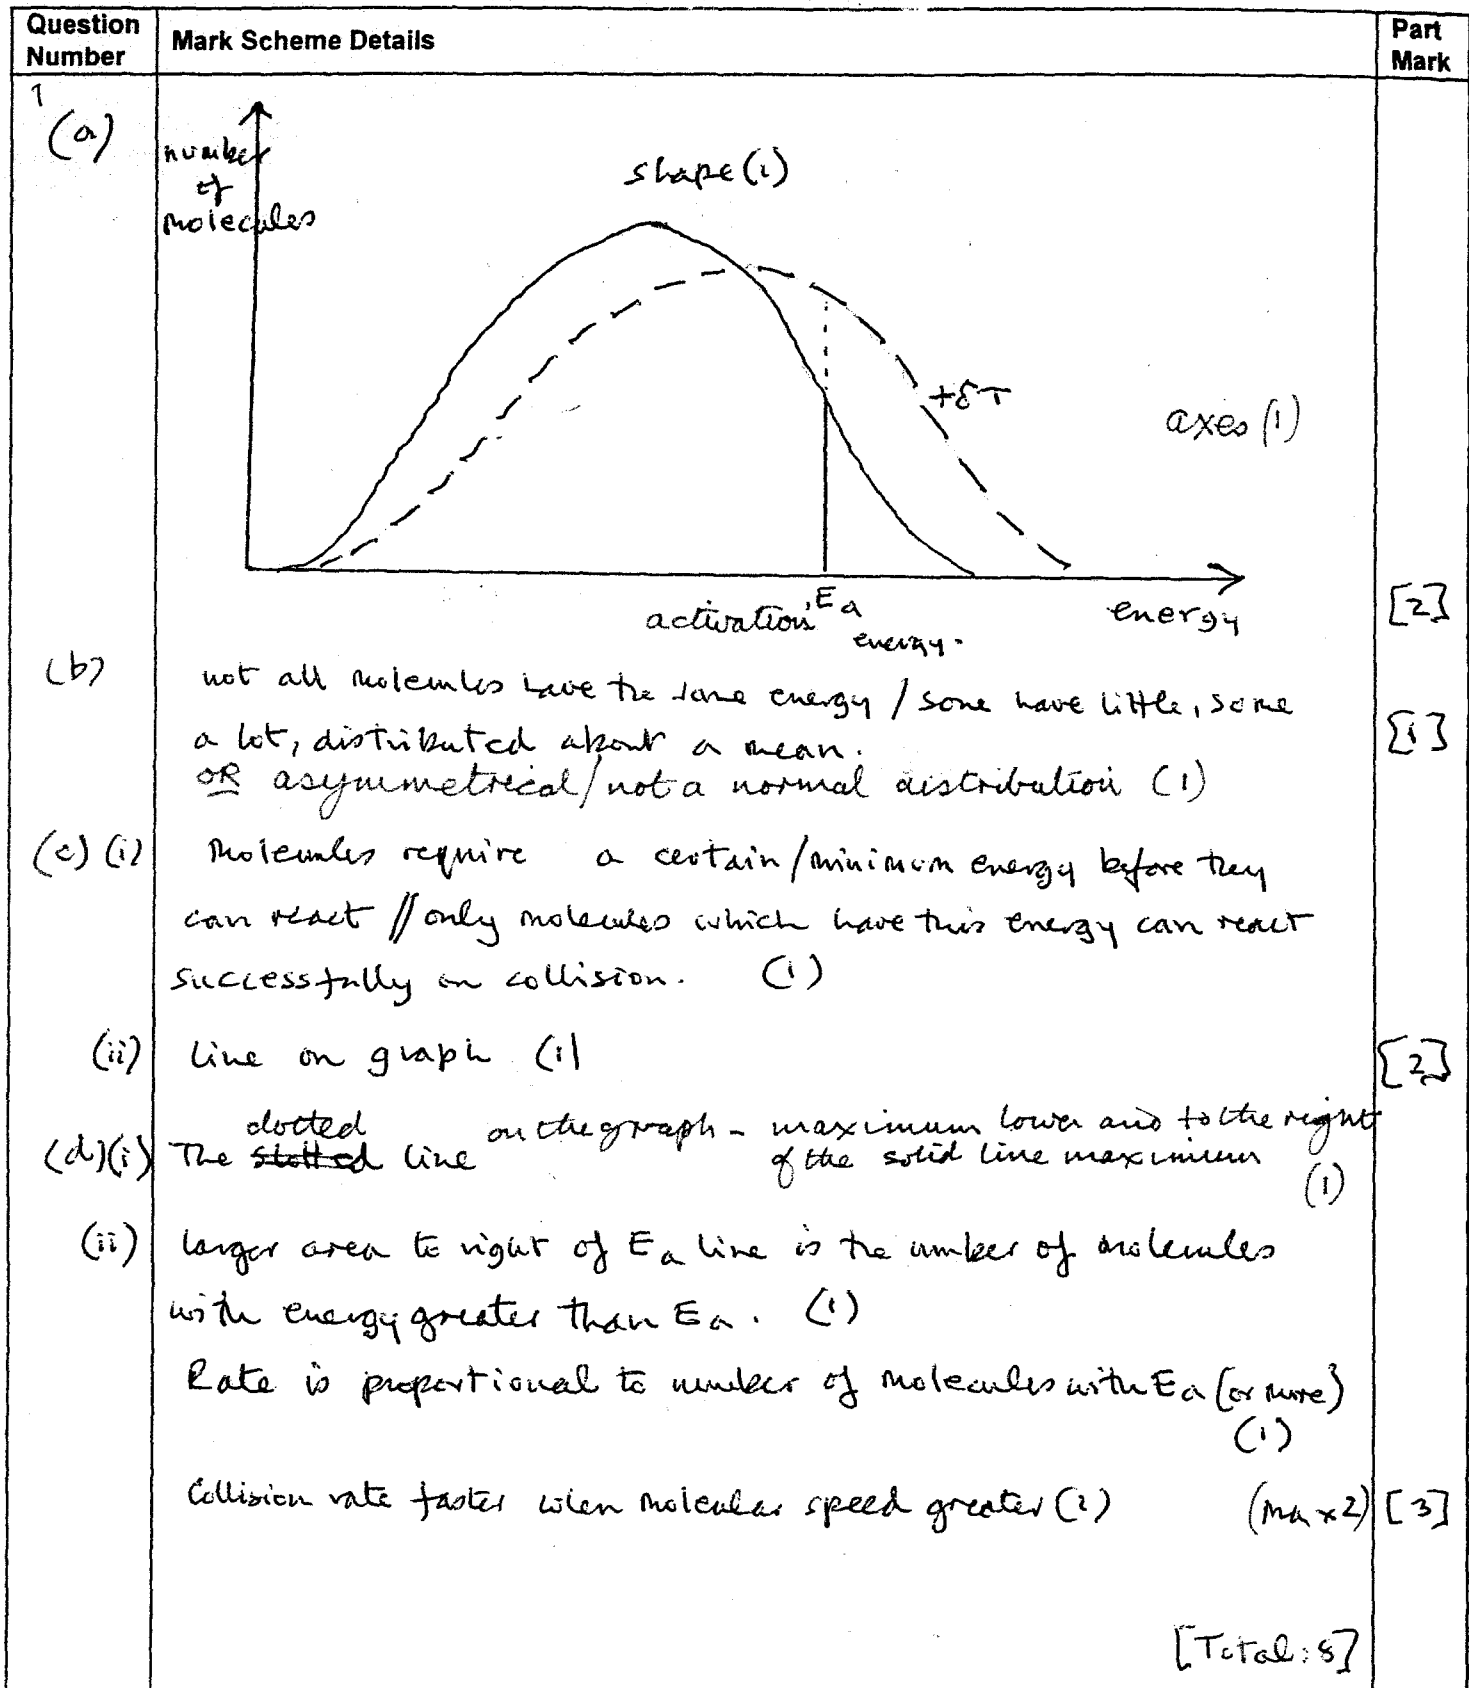 Question Number
Mark Scheme Details
Part Mark
1
(a)
number
of
molecules
shape (1)
+δT
axes (1)
activation Ea energy.
energy
[2]
(b)
not all molecules have the same energy / some have little, some
a lot, distributed about a mean.
[1]
OR asymmetrical/not a normal distribution (1)
(c) (i) Molecules require a certain/minimum energy before they
can react // only molecules which have this energy can react
successfully on collision. (1)
(ii) line on graph (1)
[2]
(d)(i) The dotted line on the graph - maximum lower and to the right
of the solid line maximum
(1)
(ii) larger area to right of Ea line is the number of molecules
with energy greater than Ea. (1)
Rate is proportional to number of molecules with Ea (or more)
(1)
Collision rate faster when molecular speed greater (1) (max 2) [3]
[Total: 8]